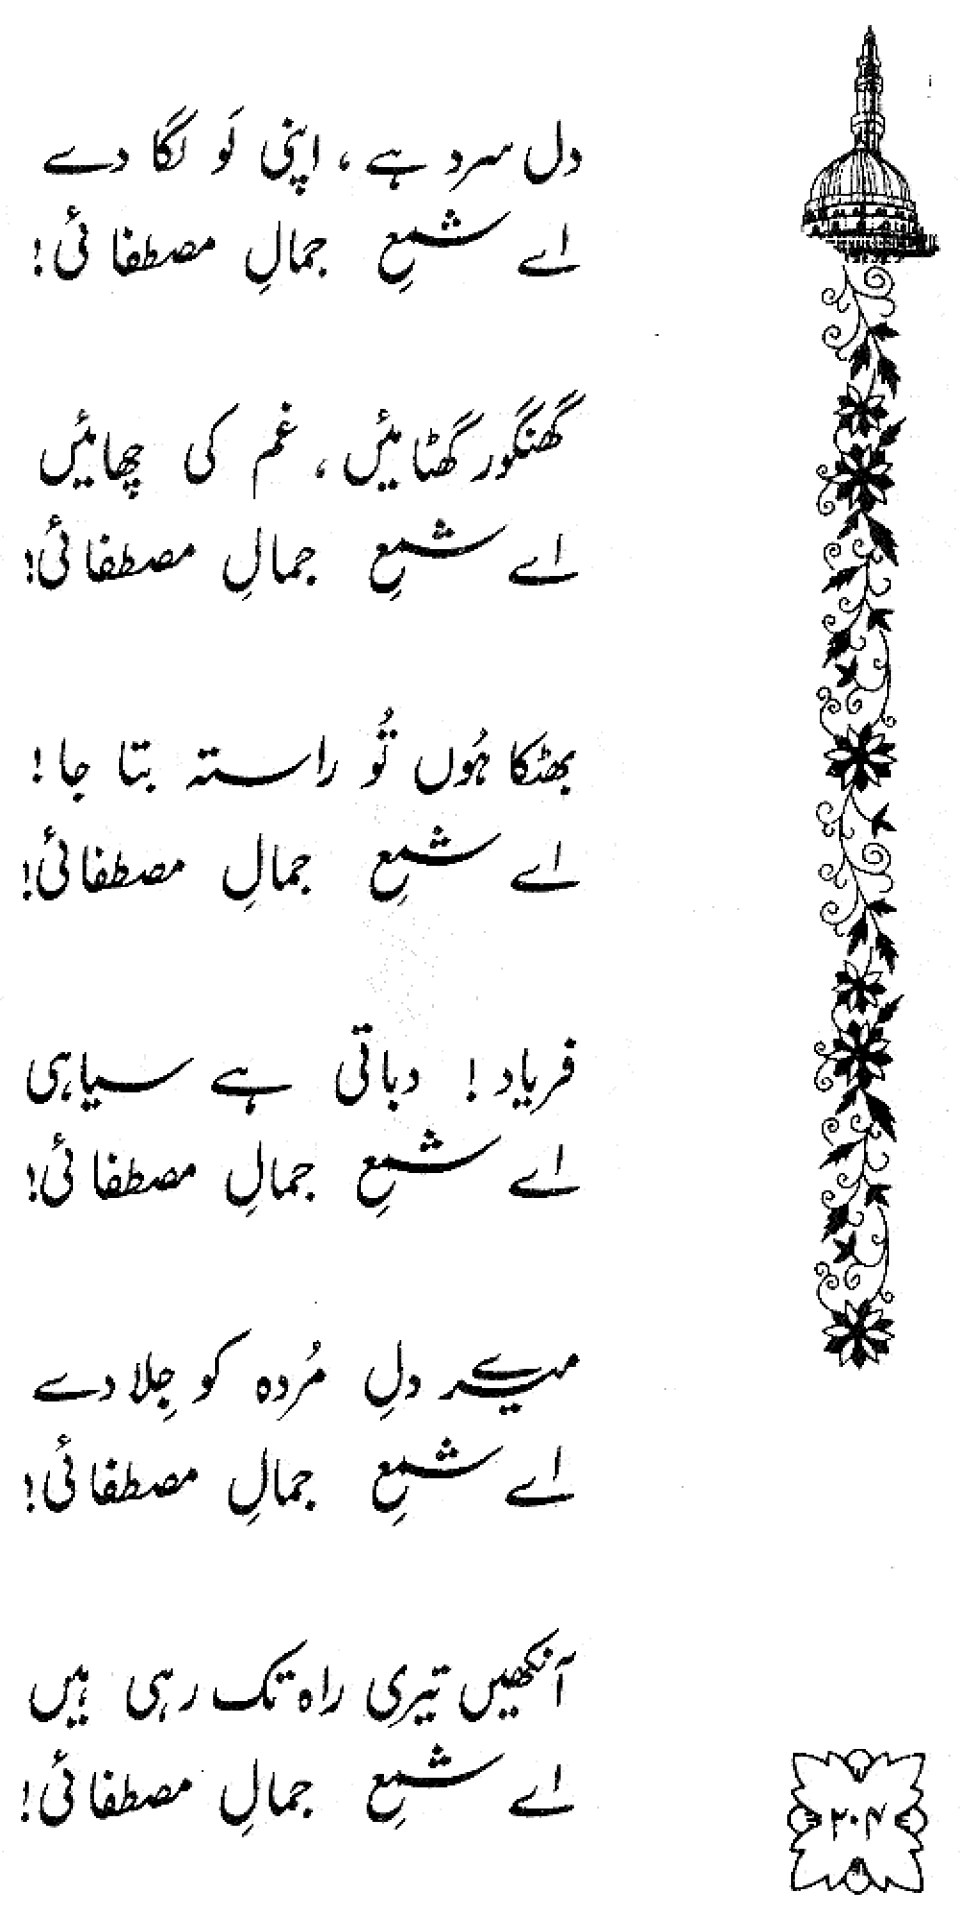 دل سرد ہے ، اپنی لَو لگا دے
اے شمعِ جمالِ مصطفائی !
گھنگور گھٹائیں ، غم کی چھائیں
اے شمعِ جمالِ مصطفائی !
بھٹکا ہُوں تُو راستہ بتا جا !
اے شمعِ جمالِ مصطفائی !
فریاد ! دباتی ہے سیاہی
اے شمعِ جمالِ مصطفائی !
میرے دلِ مُردہ کو جِلا دے
اے شمعِ جمالِ مصطفائی !
آنکھیں تیری راہ تک رہی ہیں
اے شمعِ جمالِ مصطفائی !
۲۰۴